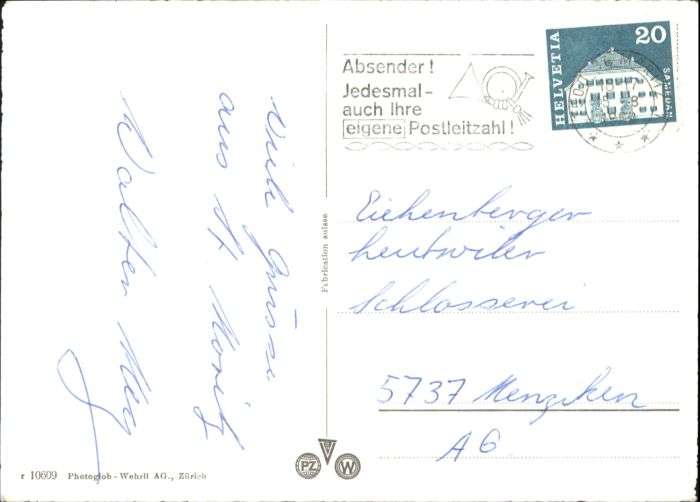 Viele Grüsse
aus St. Moritz
Walter
Absender!
Jedesmal-
auch Ihre
eigene Postleitzahl!
HELVETIA
20
SAMEDAN
Eichenberger
Leutwiler
Schlosserei
5737 Menziken
AG
Fabrication suisse
r 10609 Photoglob-Wehrli AG., Zürich
PZ
W